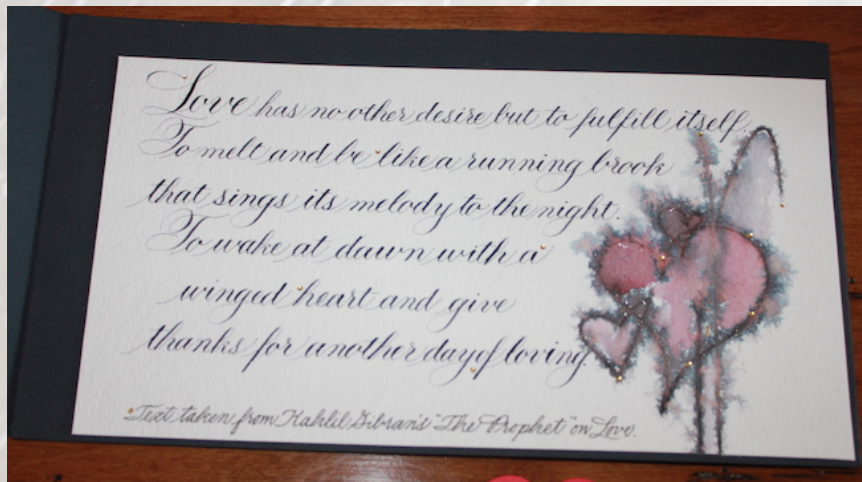 Love has no other desire but to fulfill itself.
To melt and be like a running brook
that sings its melody to the night.
To wake at dawn with a
winged heart and give
thanks for another day of loving.
Text taken from Kahlil Gibran's "The Prophet" on Love.